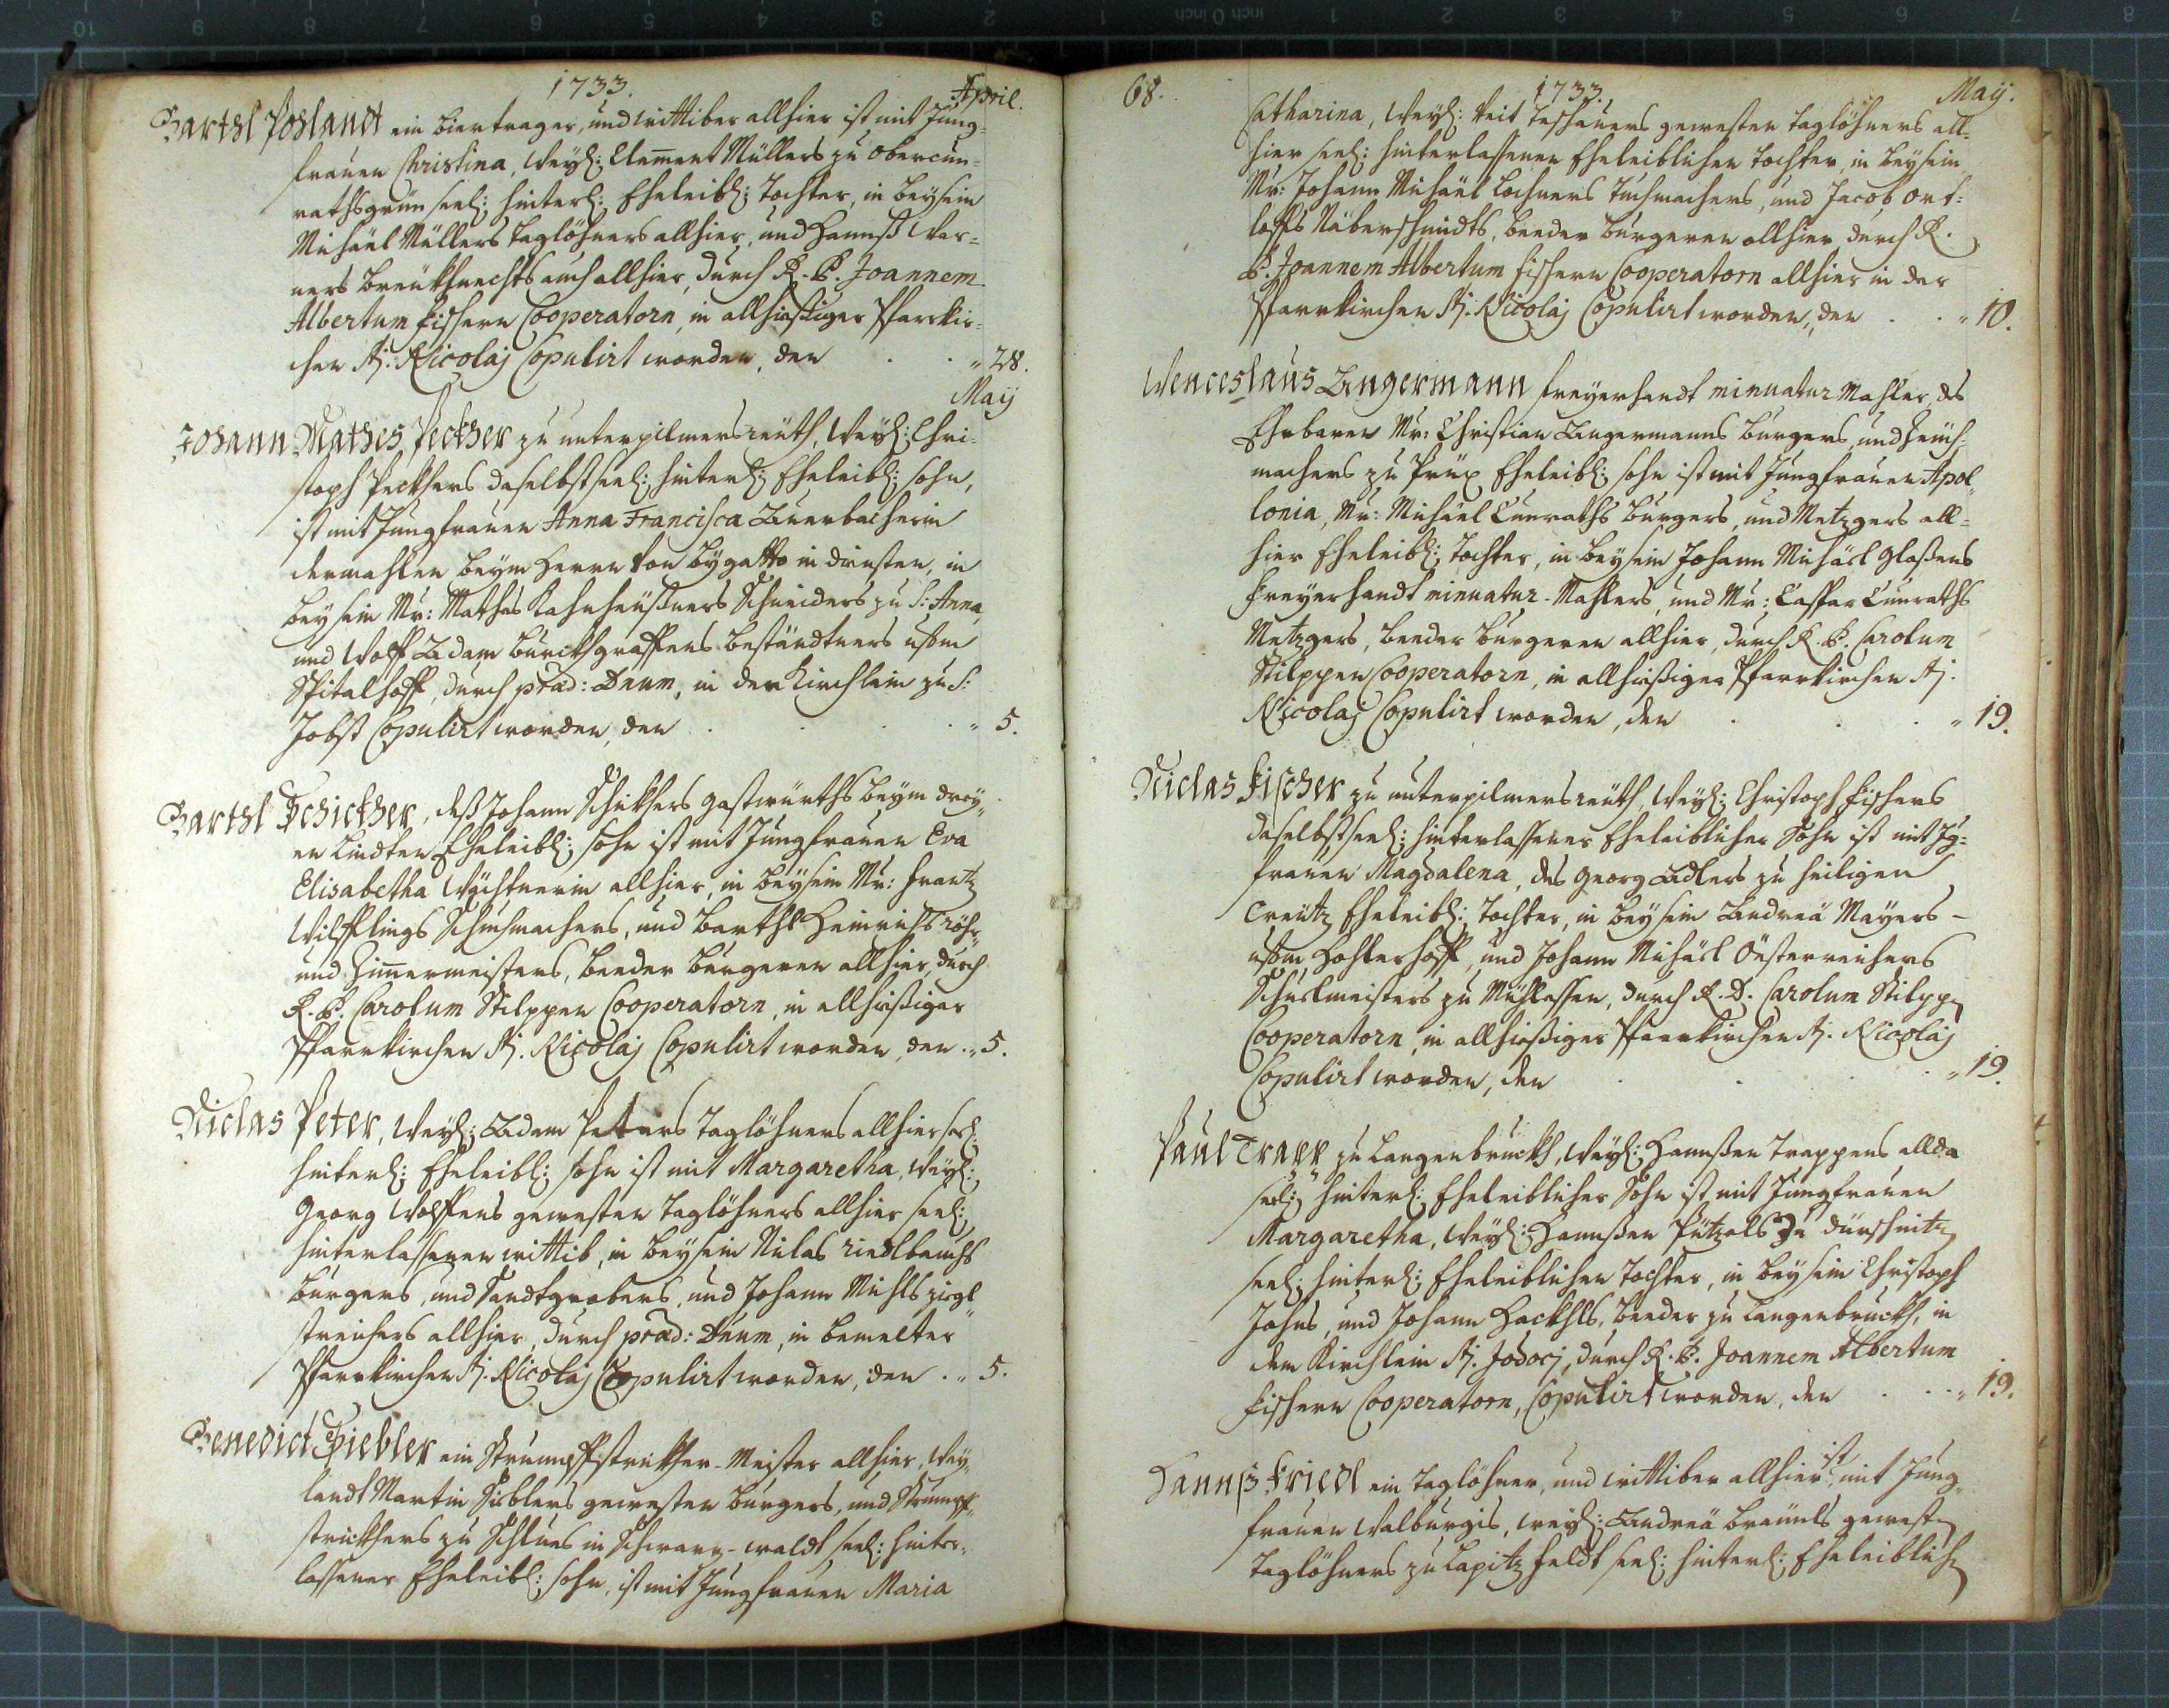 1733. April.
Barthl Poslandt ein Biertrager, und Wittiber allhier ist mit Jung-
frauen Christina, Weyl: Clement Müllers zu Obercun-
rathsgrün seel: hinterl: Eheleibl: Tochter, in beysein
Michäel Müllers Taglöhners allhier, und Hannß Wer-
ners Breukhnechts auch allhier, durch R. P. Joannem
Albertum Fischern Cooperatorn, in allhießiger Pfarrkir-
chen St: Nicolaj Copulirt worden, den . . " 28.
May
Johann Mathes Peckher zu unterpilmersreüth, Weyl: Chri-
stoph Peckhers daselbst seel: hinterl: Eheleibl: Sohn,
ist mit Jungfrauen Anna Francisca Auerbacherin
dermahlen beym Herrn von Bygatto in diensten, in
beysein Mr: Mathes Kahnheüßners Schneiders zu S: Anna,
und Wolff Adam Burckhgraffens Beständtners ußm
Spitalhoff, durch præd: Dnum, in der Kirchlein zu S:
Jobst Copulirt worden, den . . . " 5.
Barthl Schickher, deß Johann Schickhers gastwürths beym drey-
en Lindten Eheleibl: Sohn ist mit Jungfrauen Eva
Elisabetha Wächtnerin allhier, in beysein Mr: Frantz
Wilfflings Schuhmachers, und Barthl Heinrichs röhr-
und Zimmermeisters, beeder Burgeren allhier, durch
R. P. Carolum Stilppen Cooperatorn, in allhießiger
Pfarrkirchen St. Nicolaj Copulirt worden, den . " 5.
Niclas Peter, Weyl: Adam Peters Taglöhners allhier seel:
hinterl: Eheleibl: Sohn ist mit Margaretha, Weyl:
Georg Wolffens gewesten Taglöhners allhier seel:
hinterlassenen Wittib, in beysein Niclas riedlbauchs
Burgers, und Sandtgrabers, und Johann Michls ziegl-
streichers allhier, durch præd: Dnum, in bemelter
Pfarrkirchen St. Nicolaj Copulirt worden, den . " 5.
Benedict Siebler ein Strumpffstrickher-Meister allhier, Wey-
landt Martin Sieblers gewesten Burgers, und Strumpf-
strickhers zu Schlues in Schwartz-waldt seel: hinter-
lassener Eheleibl: Sohn, ist mit Jungfrauen Maria
68. 1733. May.
Catharina, Weyl: Veit Teschauers gewesten Taglöhners all-
hier seel: hinterlassenen Eheleiblichen Tochter, in beysein
Mr: Johann Michäel Lochners Tuchmachers, und Jacob Ort-
loffs Näberschmidts, beeder Burgeren allhier durch R.
P. Joannem Albertum Fischern Cooperatorn allhier in der
Pfarrkirchen St. Nicolaj Copulirt worden, den . . " 10.
Wenceslaus Angermann freyerhandt minuatur Mahler, des
Ehrbaren Mr: Christian Angermanns Burgers, und Zeüch-
machers zu Prüx Eheleibl: Sohn ist mit Jungfrauen Apol-
lonia, Mr: Michäel Cunraths Burgers, und Metzgers all-
hier Eheleibl: Tochter, in beysein Johann Michäel Glaßens
freyerhandt minuatur-Mahlers, und Mr: Casspar Cunraths
Metzgers, beeder Burgeren allhier, durch R. P. Carolum
Stilppen Cooperatorn, in allhießiger Pfarrkirchen St.
Nicolaj Copulirt worden, den . . . " 19.
Niclas Fischer zu unterpilmersreüth, Weyl: Christoph Fischers
daselbst seel: hinterlassener Eheleiblicher Sohn ist mit Jg-
frauen Magdalena, des Georg Adlers zu heiligen
Creütz Eheleibl: Tochter, in beysein Andreä Mayers –
ußm Hohlerhoff, und Johann Michäel Öesterreichers
Schuelmeisters zu Mühlessen, durch R. D. Carolum Stilppen
Cooperatorn, in allhießiger Pfarrkirchen St. Nicolaj
Copulirt worden, den . . . " 19.
Paul Trapp zu Langenbruckh, Weyl: Hannßen Trappens allda
seel: hinterl: Eheleiblicher Sohn ist mit Jungfrauen
Margaretha, Weyl: Hannßen Pützels zu dürschnitz
seel: hinterl: Eheleiblichen Tochter, in beysein Christoph
Johns, und Johann Hackhls, beeder zu Langenbruckh, in
dem Kirchlein St. Jodocj, durch R. P. Joannem Albertum
Fischern Cooperatorn, Copulirt worden, den . . . " 19.
Hannß Friedl ein Taglöhner, und Wittiber allhier ist mit Jung-
frauen Walburgis, Weyl: Andreä Bräunls gewesten
Taglöhners zu Lapitzfeldt seel: hinterl: Eheleiblichen